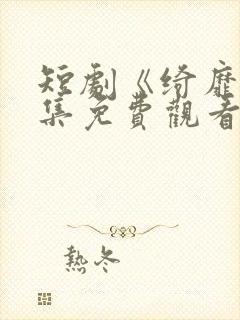 短劇《綺靡
集免費觀看
熱冬